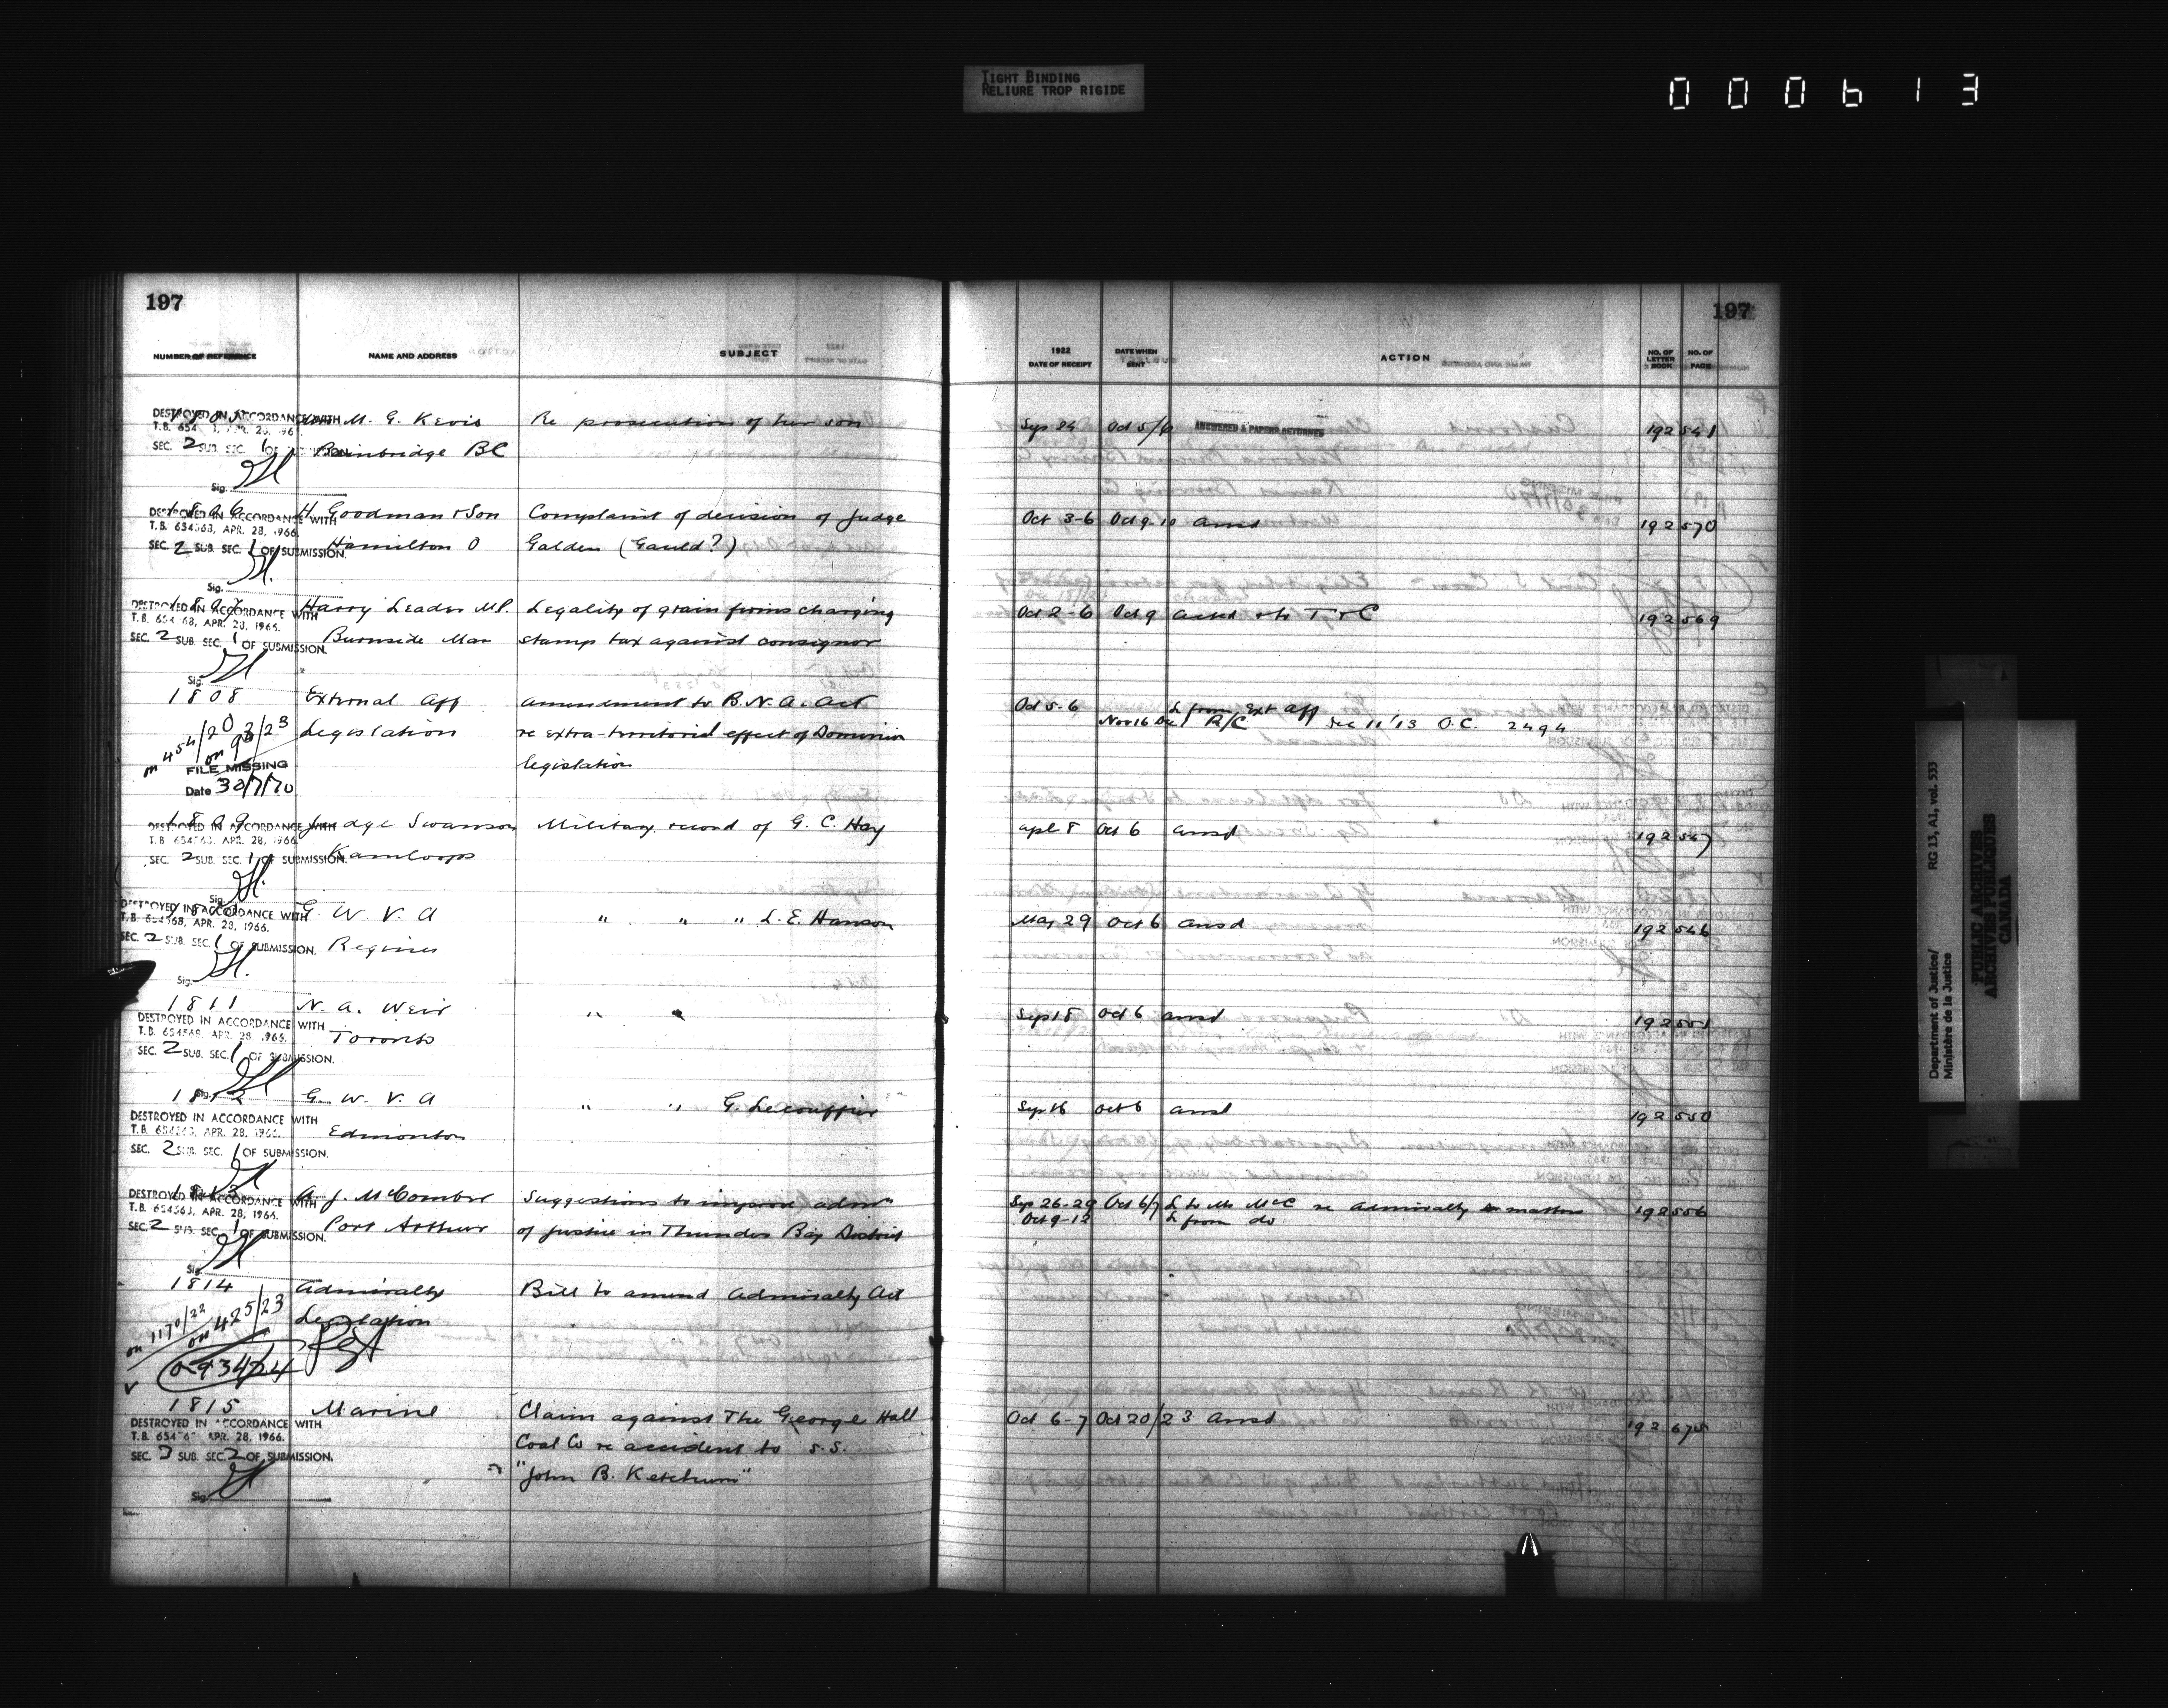 TIGHT BINDING
RELIURE TROP RIGIDE
000613
197
197
NUMBER OF REFERENCE NAME AND ADDRESS SUBJECT
1922 DATE OF RECEIPT DATE WHEN SENT ACTION NO. OF LETTER BOOK NO. OF PAGE
DESTROYED IN ACCORDANCE WITH
M. G. Kevis Re prosecution of her son Sep 24 Oct 5/6 ANSWERED & PAPERS RETURNED 192 541
SEC. 2 SUB. SEC. 1 OF
Bainbridge BC
Sig.
1806 H Goodman & Son Complaint of decision of Judge Oct 3-6 Oct 9-10 ansd 192 570
DESTROYED IN ACCORDANCE WITH
T.B. 654563, APR. 28, 1966.
SEC. 2 SUB. SEC. 1 OF SUBMISSION.
Hamilton O Galden (Gauld?)
Sig.
1807 Harry Leader MP. Legality of grain firms charging Oct 2-6 Oct 9 ackd & to T & C 192 569
DESTROYED IN ACCORDANCE WITH
T.B. 654 68, APR. 28, 1966.
SEC. 2 SUB. SEC. 1 OF SUBMISSION.
Burnside Man stamp tax against consignor
Sig.
1808 External Aff amendment to B.N.A. Act Oct 5-6 L from Ext Aff
Nov 16 Dec 1 R/C Dec 11 '13 O.C. 2494
on 454/20 on 93/23 Legislation re extra-territorial effect of Dominion
legislation
FILE MISSING
Date 30/7/70
1809 Judge Swanson Military record of G. C. Hay apl 8 Oct 6 ansd 192 547
DESTROYED IN ACCORDANCE WITH
T.B. 654563, APR. 28, 1966.
SEC. 2 SUB. SEC. 1 OF SUBMISSION.
Kamloops
Sig.
G. W. V. A " " " L. E. Hanson May 29 Oct 6 ansd 192 546
DESTROYED IN ACCORDANCE WITH
T.B. 654568, APR. 28, 1966.
SEC. 2 SUB. SEC. 1 OF SUBMISSION.
Regina
Sig.
1811 N. A. Weir " " Sep 18 Oct 6 ansd 192 551
DESTROYED IN ACCORDANCE WITH
T.B. 654568, APR. 28, 1966.
Toronto
SEC. 2 SUB. SEC. 1 OF SUBMISSION.
Sig.
1812 G. W. V. A " " G. Lecouffier Sep 16 Oct 6 ansd 192 550
DESTROYED IN ACCORDANCE WITH
T.B. 654563, APR. 28, 1966.
Edmonton
SEC. 2 SUB. SEC. 1 OF SUBMISSION.
1813 A. J. McComber Suggestions to improve admn Sep 26-29 Oct 6/7 L to Mr McC re admiralty matters 192 556
DESTROYED IN ACCORDANCE WITH
T.B. 654563, APR. 28, 1966.
SEC. 2 SUB. SEC. 1 OF SUBMISSION.
Port Arthur of justice in Thunder Bay District Oct 9-12 L from do
Sig.
1814 Admiralty Bill to amend Admiralty Act
on 1170/22 on 425/23 Legislation
1815 Marine Claim against The George Hall Oct 6-7 Oct 20/23 ansd 192 675
DESTROYED IN ACCORDANCE WITH
T.B. 65456 APR. 28, 1966.
Coal Co re accident to S.S.
SEC. 3 SUB. SEC. 2 OF SUBMISSION.
"John B. Ketchum"
Sig.
Department of Justice/
Ministère de la Justice
RG 13, A1, vol. 533
PUBLIC ARCHIVES
ARCHIVES PUBLIQUES
CANADA